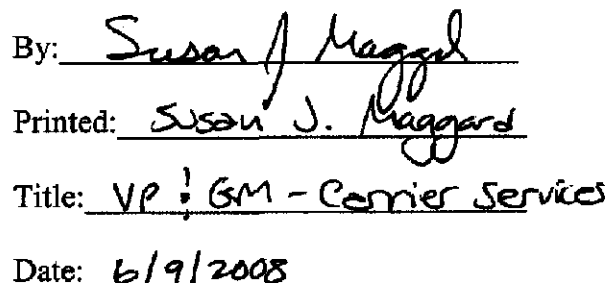 By: Susan J Maggard
Printed: Susan J. Maggard
Title: VP & GM - Carrier Services
Date: 6/9/2008